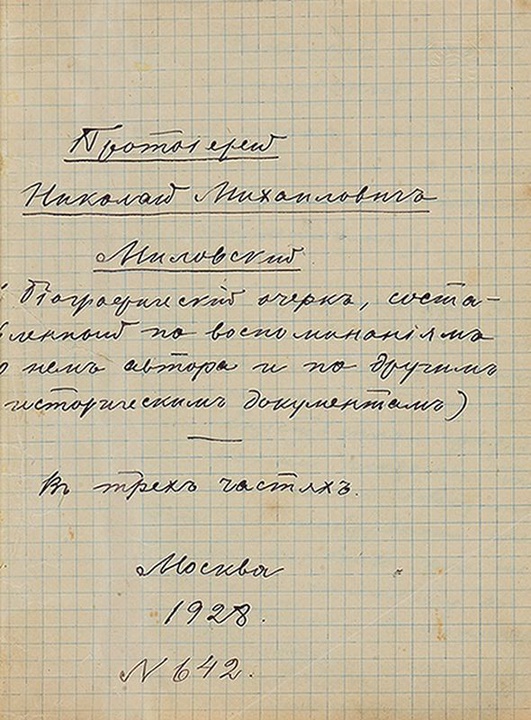 Протоіерей
Николай Михаиловичъ
Миловский
(Біографическій очеркъ, соста-
вленной по воспоминаніямъ
о немъ автора и по другимъ
историческимъ документамъ)
Въ трехъ частяхъ.
Москва
1928.
N 642.